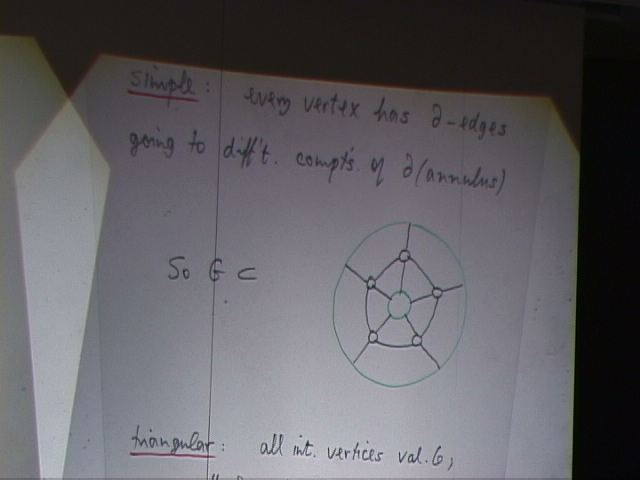 simple: every vertex has ∂-edges
going to diff't. compts. of ∂(annulus)
So G ⊂
triangular: all int. vertices val. 6;